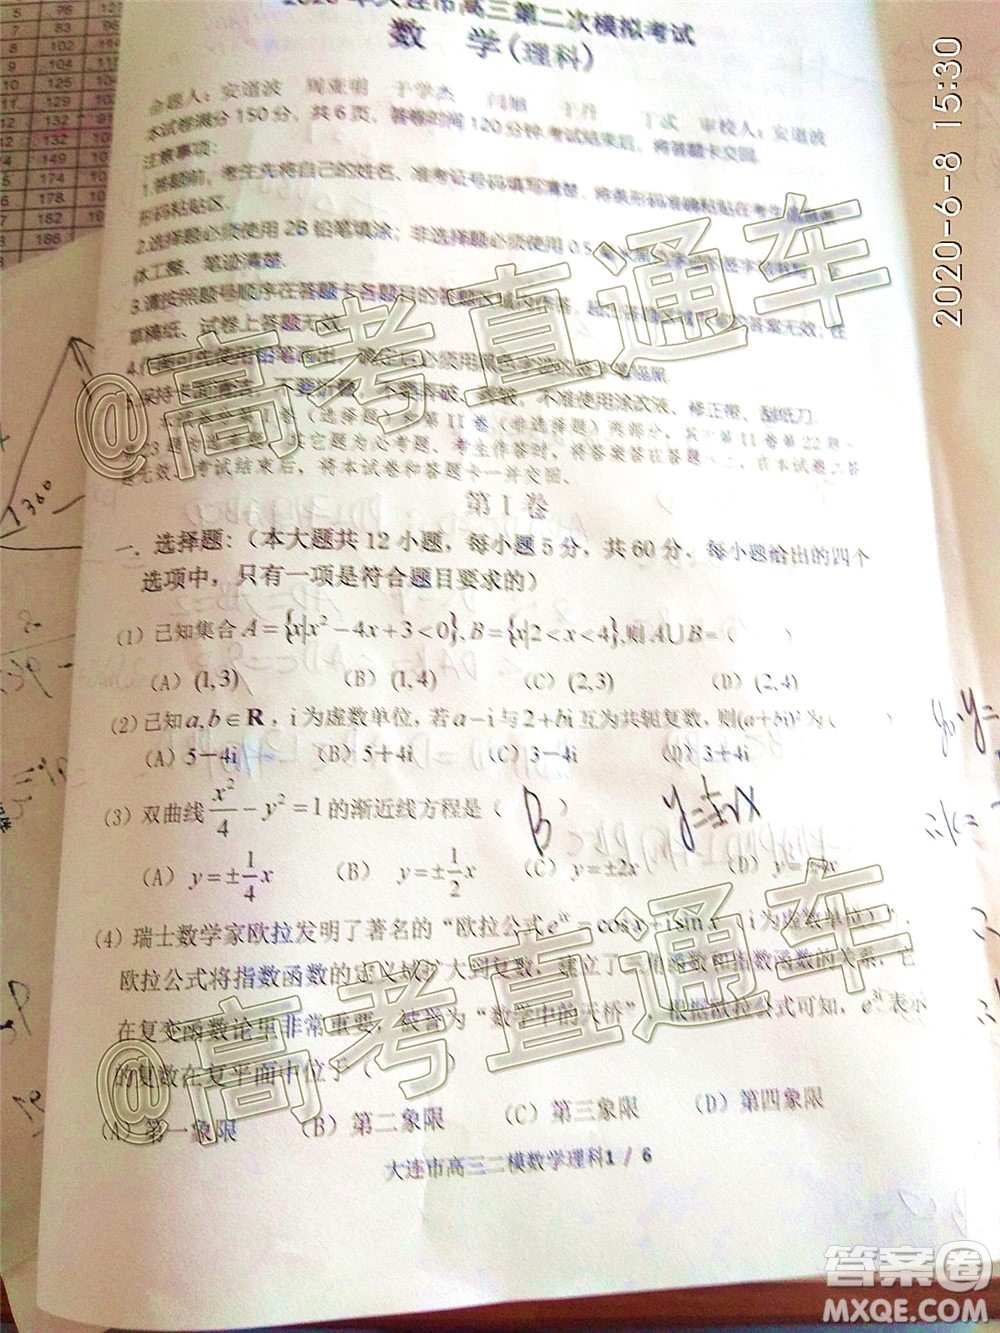 2020年大连市高三第二次模拟考试
数 学(理科)
命题人：安道波 周亚明 于学杰 闫旭 于丹 丁武 审校人：安道波
本试卷满分150分，共6页，答卷时间120分钟.考试结束后，将答题卡交回.
注意事项：
1.答题前，考生先将自己的姓名、准考证号码填写清楚，将条形码准确粘贴在考生信息条
形码粘贴区.
2.选择题必须使用2B铅笔填涂；非选择题必须使用0.5
体工整、笔迹清楚.
3.请按照题号顺序在答题卡各题目的答题区域内作答，超出答题区域 答案无效；在
草稿纸、试卷上答题无效.
4.作图可先使用铅笔画出，确定后必须用黑色字迹的签字笔描黑.
5.保持卡面清洁，不要折叠、不要弄破、弄皱，不准使用涂改液、修正带、刮纸刀.
本试卷分第I卷（选择题）和第II卷（非选择题）两部分，其中第II卷第22题~
23题为选考题，其它题为必考题．考生作答时，将答案答在答题卡上，在本试卷上答
题无效．考试结束后，将本试卷和答题卡一并交回．
第 I 卷
一．选择题：（本大题共12小题，每小题5分，共60分，每小题给出的四个
选项中，只有一项是符合题目要求的）
(1) 已知集合 A={x|x²−4x+3<0}, B={x|2<x<4},则 A∪B=（ ）
(A) (1,3) (B) (1,4) (C) (2,3) (D) (2,4)
(2) 已知 a,b∈R，i为虚数单位，若 a−i 与 2+bi 互为共轭复数，则(a+bi)²为（ ）
(A) 5−4i (B) 5+4i (C) 3−4i (D) 3+4i
(3) 双曲线 x²/4 − y² =1 的渐近线方程是（ B ） y=±½x
(A) y=±1/4 x (B) y=±1/2 x (C) y=±2x (D) y=±4x
(4) 瑞士数学家欧拉发明了著名的“欧拉公式 e^{ix}=cosx+isinx（i为虚数单位）”，
欧拉公式将指数函数的定义域扩大到复数，建立了三角函数和指数函数的关系，它
在复变函数论里非常重要，被誉为“数学中的天桥”，根据欧拉公式可知，e^{3i}表示
的复数在复平面中位于（ ）
(A) 第一象限 (B) 第二象限 (C) 第三象限 (D) 第四象限
大连市高三二模数学理科1 / 6
2020-6-8 15:30
@高考直通车
@高考直通车
答案圈
MXQE.COM